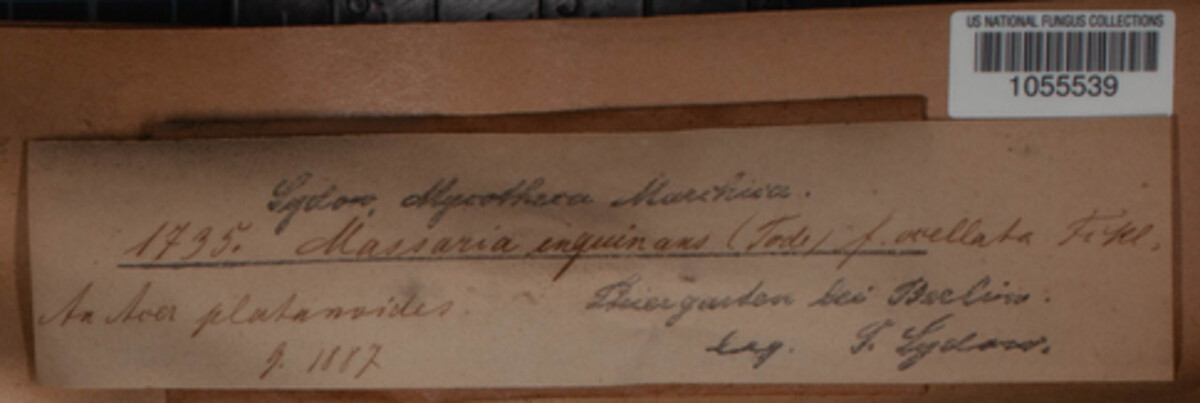 US NATIONAL FUNGUS COLLECTIONS
1055539
Sydow, Mycotheca Marchica.
1735. Massaria inquinans (Tode) f. ocellata Fckl.
An Acer platanoides. Thiergarten bei Berlin.
9. 1887 leg. P. Sydow.